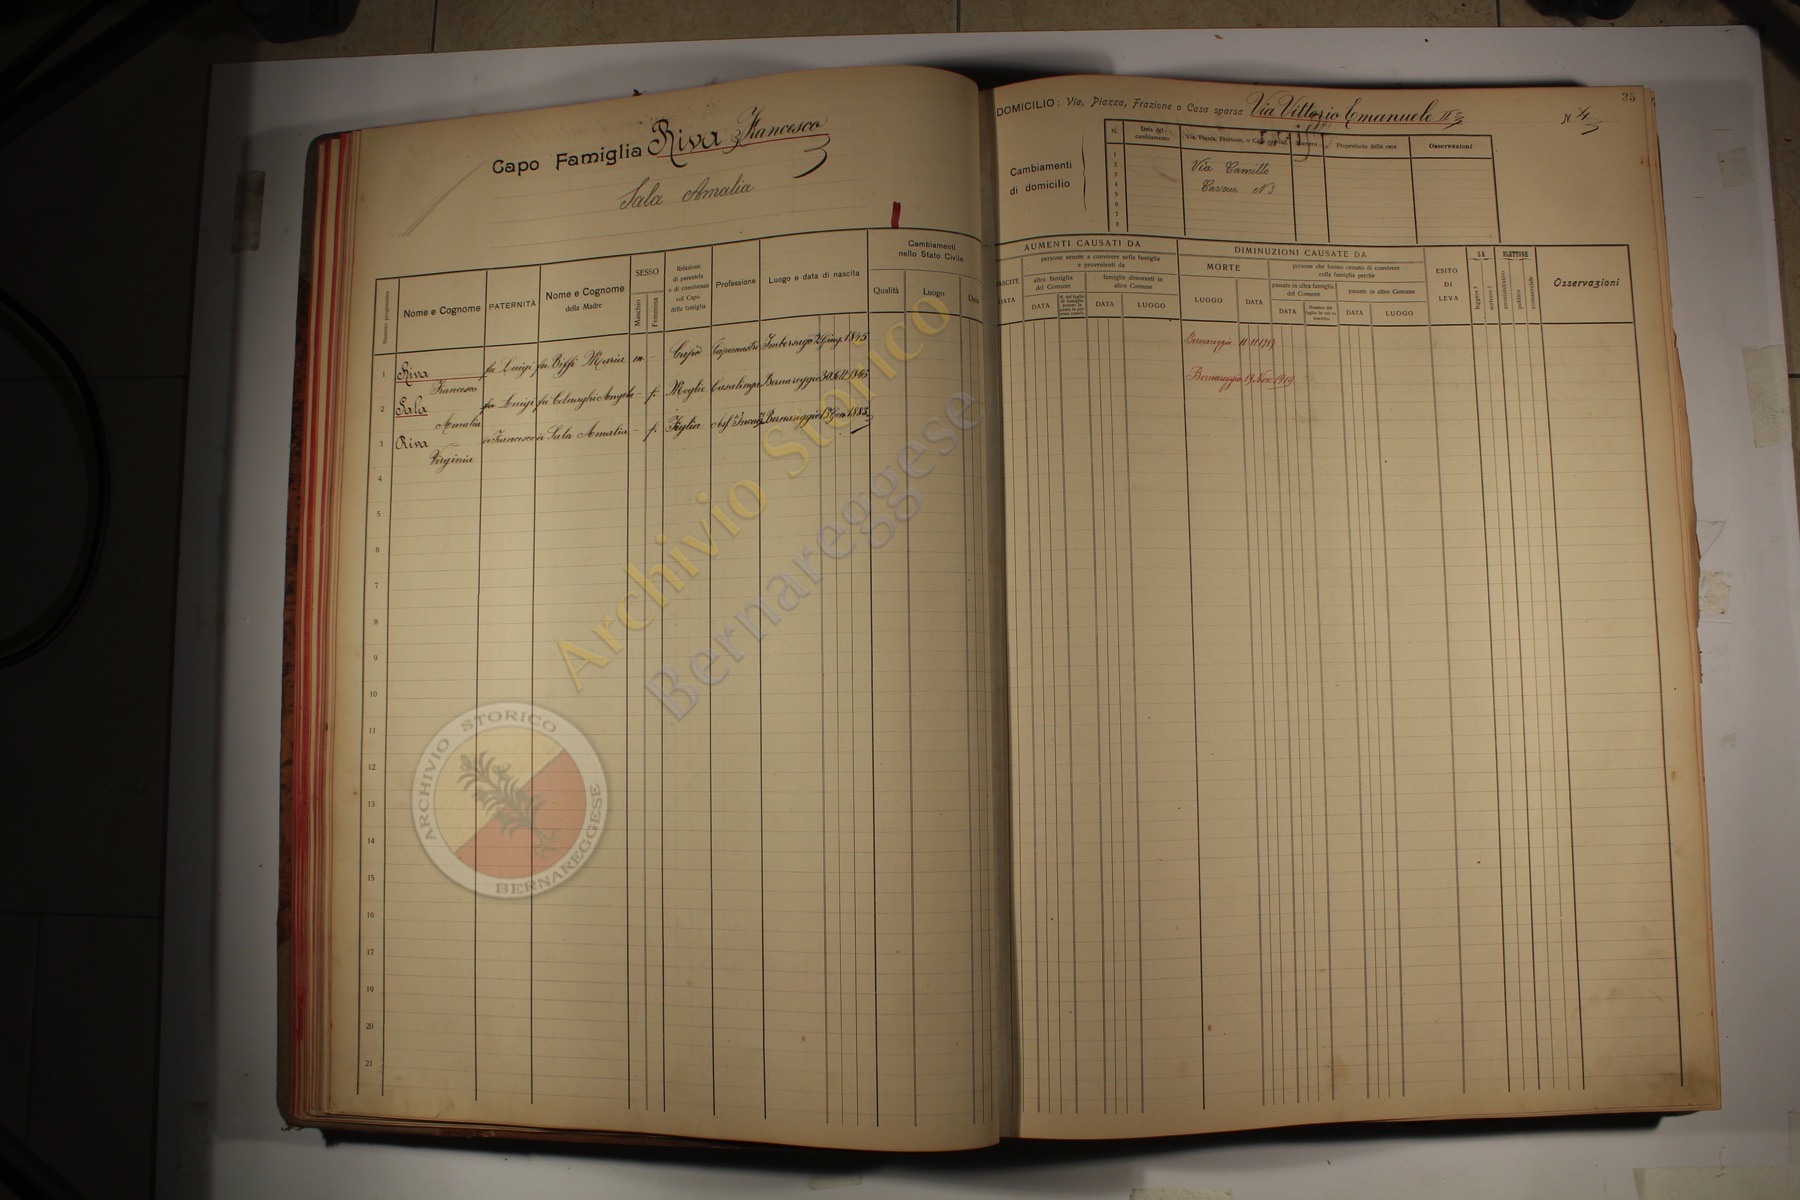 35
Capo Famiglia Riva Francesco
Sala Amalia
DOMICILIO: Via, Piazza, Frazione o Casa sparsa Via Vittorio Emanuele II N. 4
Cambiamenti di domicilio
N.
Data del cambiamento
Via, Piazza, Frazione, o Casa sparsa
Numero
Proprietario della casa
Osservazioni
1
2
3
4
5
6
7
8
Via Camillo
Cavour N 3
Numero progressivo
Nome e Cognome
PATERNITÀ
Nome e Cognome della Madre
SESSO
Maschio
Femmina
Relazione di parentela o di convivenza col Capo della famiglia
Professione
Luogo e data di nascita
Cambiamenti nello Stato Civile
Qualità
Luogo
Data
AUMENTI CAUSATI DA
NASCITE
DATA
persone venute a convivere nella famiglia e provenienti da
altra famiglia del Comune
DATA
famiglie dimoranti in altro Comune
DATA
LUOGO
DIMINUZIONI CAUSATE DA
MORTE
LUOGO
DATA
persone che hanno cessato di convivere colla famiglia perchè
passate in altra famiglia del Comune
DATA
passate in altro Comune
DATA
LUOGO
ESITO DI LEVA
SA
leggere?
scrivere?
ELETTORE
amministrativo
politico
commerciale
Osservazioni
1 Riva Francesco fu Luigi fu Biffi Maria m. - Capo Capomastro Imbersago 2 Giug. 1845 Bernareggio 11 11 1917
2 Sala Amalia fu Luigi fu Colnaghi Angela - f. Moglie Casalinga Bernareggio 30 1845 Bernareggio 19 Nov. 1919
3 Riva Virginia di Francesco di Sala Amalia - f. Figlia Bernareggio 15 Gen. 1883
4
5
6
7
8
9
10
11
12
13
14
15
16
17
18
19
20
21
Archivio Storico
Bernareggese
ARCHIVIO STORICO
BERNAREGGESE